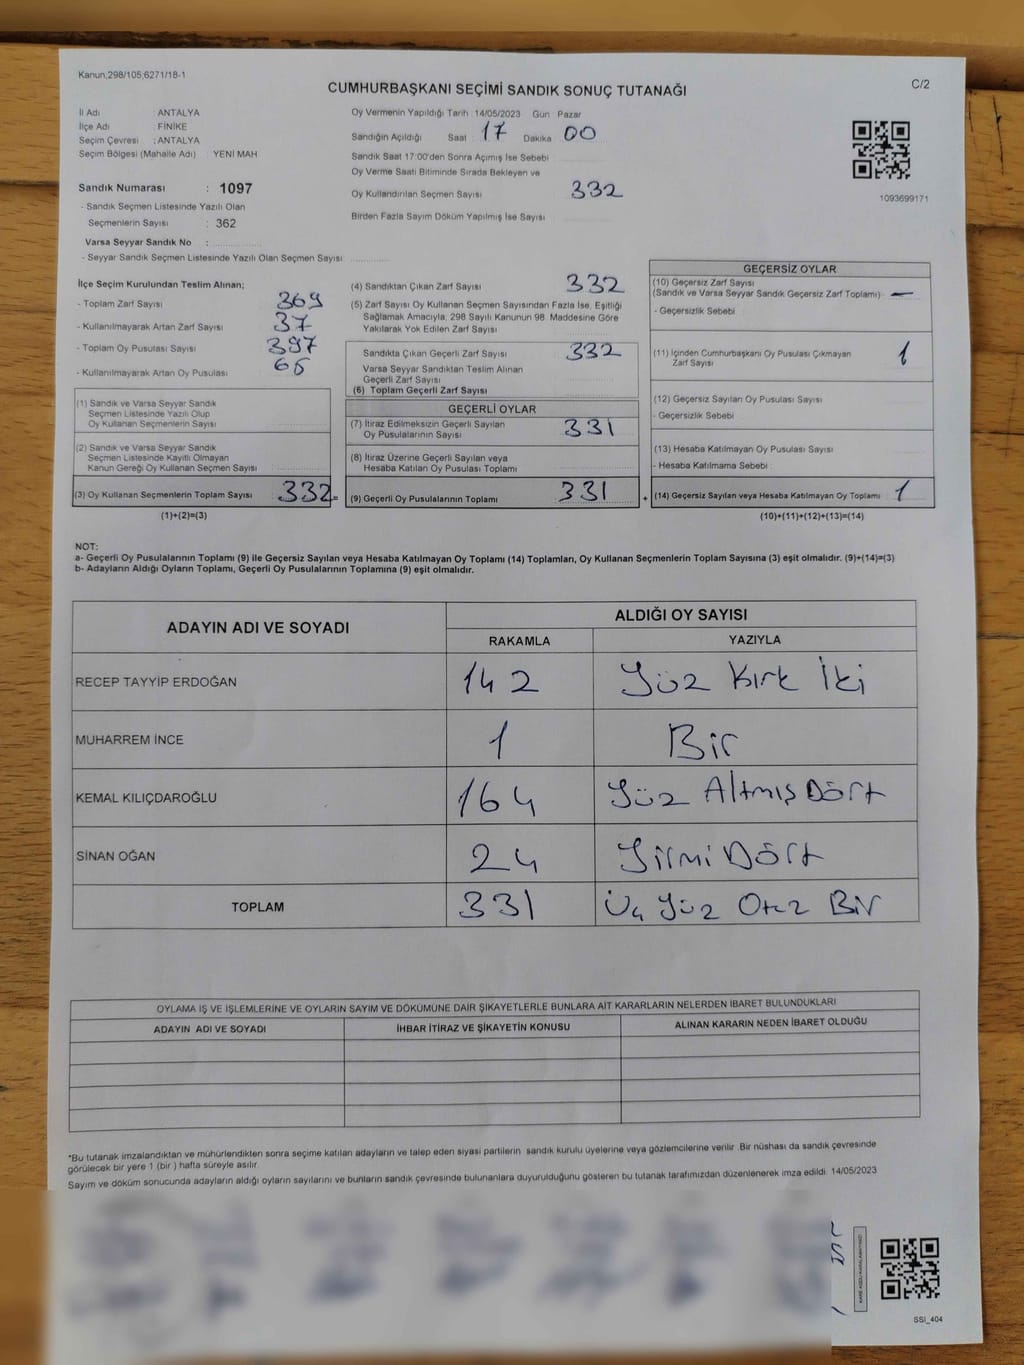 Kanun;298/105;6271/18-1
CUMHURBAŞKANI SEÇİMİ SANDIK SONUÇ TUTANAĞI
C/2
İl Adı : ANTALYA
İlçe Adı : FİNİKE
Seçim Çevresi : ANTALYA
Seçim Bölgesi (Mahalle Adı) YENİ MAH
Sandık Numarası : 1097
- Sandık Seçmen Listesinde Yazılı Olan
Seçmenlerin Sayısı : 362
Varsa Seyyar Sandık No :
- Seyyar Sandık Seçmen Listesinde Yazılı Olan Seçmen Sayısı:
Oy Vermenin Yapıldığı Tarih 14/05/2023 Gün Pazar
Sandığın Açıldığı Saat : 17 Dakika 00
Sandık Saat 17:00'den Sonra Açımış İse Sebebi
Oy Verme Saati Bitiminde Sırada Bekleyen ve
Oy Kullandırılan Seçmen Sayısı 332
Birden Fazla Sayım Döküm Yapılmış İse Sayısı
1093699171
İlçe Seçim Kurulundan Teslim Alınan;
- Toplam Zarf Sayısı 369
- Kullanılmayarak Artan Zarf Sayısı 37
- Toplam Oy Pusulası Sayısı 397
- Kullanılmayarak Artan Oy Pusulası
(1) Sandık ve Varsa Seyyar Sandık
Seçmen Listesinde Yazılı Olup
Oy Kullanan Seçmenlerin Sayısı
(2) Sandık ve Varsa Seyyar Sandık
Seçmen Listesinde Kayıtlı Olmayan
Kanun Gereği Oy Kullanan Seçmen Sayısı
(3) Oy Kullanan Seçmenlerin Toplam Sayısı 332 =
(1)+(2)=(3)
(4) Sandıktan Çıkan Zarf Sayısı 332
(5) Zarf Sayısı Oy Kullanan Seçmen Sayısından Fazla İse, Eşitliği
Sağlamak Amacıyla, 298 Sayılı Kanunun 98. Maddesine Göre
Yakılarak Yok Edilen Zarf Sayısı
Sandıkta Çıkan Geçerli Zarf Sayısı 332
Varsa Seyyar Sandıktan Teslim Alınan
Geçerli Zarf Sayısı
(6) Toplam Geçerli Zarf Sayısı
GEÇERLİ OYLAR
(7) İtiraz Edilmeksizin Geçerli Sayılan
Oy Pusulalarının Sayısı 331
(8) İtiraz Üzerine Geçerli Sayılan veya
Hesaba Katılan Oy Pusulası Toplamı
(9) Geçerli Oy Pusulalarının Toplamı 331 +
GEÇERSİZ OYLAR
(10) Geçersiz Zarf Sayısı
(Sandık ve Varsa Seyyar Sandık Geçersiz Zarf Toplamı) —
- Geçersizlik Sebebi
(11) İçinden Cumhurbaşkanı Oy Pusulası Çıkmayan
Zarf Sayısı 1
(12) Geçersiz Sayılan Oy Pusulası Sayısı
- Geçersizlik Sebebi
(13) Hesaba Katılmayan Oy Pusulası Sayısı
- Hesaba Katılmama Sebebi
(14) Geçersiz Sayılan veya Hesaba Katılmayan Oy Toplamı 1
(10)+(11)+(12)+(13)=(14)
NOT:
a- Geçerli Oy Pusulalarının Toplamı (9) ile Geçersiz Sayılan veya Hesaba Katılmayan Oy Toplamı (14) Toplamları, Oy Kullanan Seçmenlerin Toplam Sayısına (3) eşit olmalıdır. (9)+(14)=(3)
b- Adayların Aldığı Oyların Toplamı, Geçerli Oy Pusulalarının Toplamına (9) eşit olmalıdır.
ADAYIN ADI VE SOYADI
ALDIĞI OY SAYISI
RAKAMLA YAZIYLA
RECEP TAYYİP ERDOĞAN 142 Yüz Kırk İki
MUHARREM İNCE 1 Bir
KEMAL KILIÇDAROĞLU 164 Yüz Altmış Dört
SİNAN OĞAN 24 Yirmi Dört
TOPLAM 331 Üç Yüz Otuz Bir
OYLAMA İŞ VE İŞLEMLERİNE VE OYLARIN SAYIM VE DÖKÜMÜNE DAİR ŞİKAYETLERLE BUNLARA AİT KARARLARIN NELERDEN İBARET BULUNDUKLARI
ADAYIN ADI VE SOYADI İHBAR İTİRAZ VE ŞİKAYETİN KONUSU ALINAN KARARIN NEDEN İBARET OLDUĞU
*Bu tutanak imzalandıktan ve mühürlendikten sonra seçime katılan adayların ve talep eden siyasi partilerin sandık kurulu üyelerine veya gözlemcilerine verilir. Bir nüshası da sandık çevresinde
görülecek bir yere 1 (bir ) hafta süreyle asılır.
Sayım ve döküm sonucunda adayların aldığı oyların sayılarını ve bunların sandık çevresinde bulunanlara duyurulduğunu gösteren bu tutanak tarafımızdan düzenlenerek imza edildi. 14/05/2023
SSİ_404